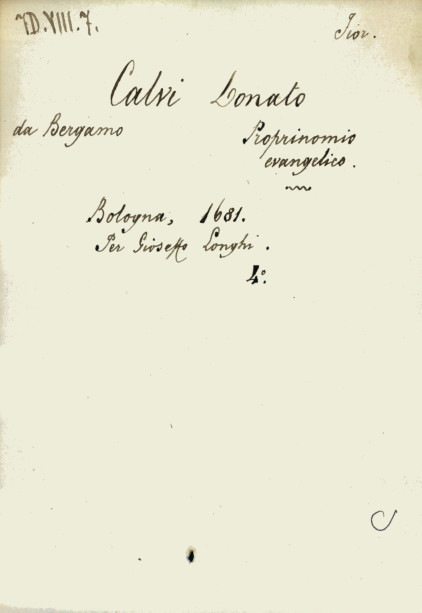 D.VIII.7.
Fior.
Calvi Donato
da Bergamo
Proprinomio
evangelico.
Bologna, 1681.
Per Gioseffo Longhi.
4º.